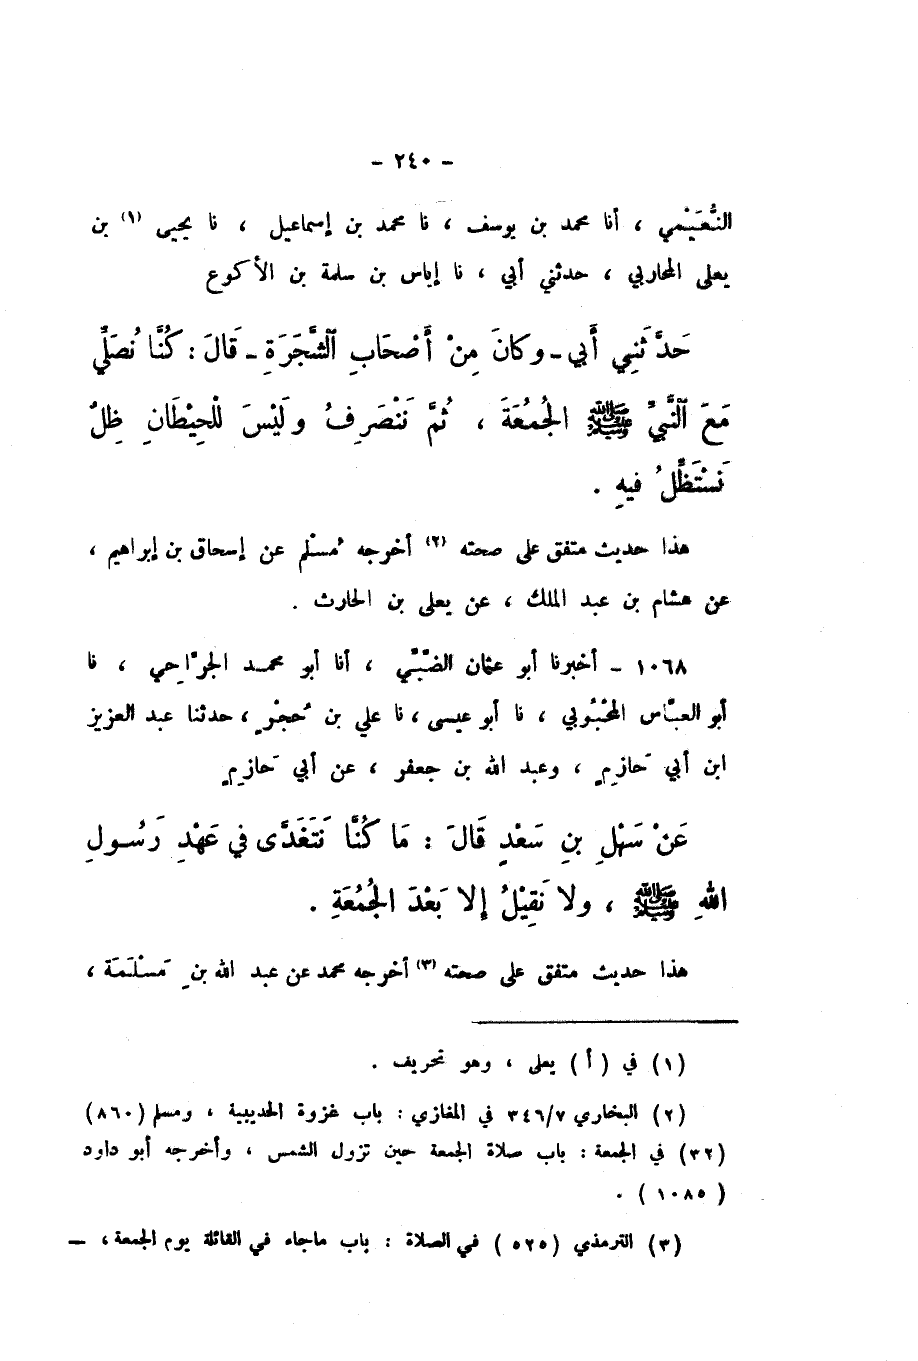 - ٢٤٠ -
النُّعَيْمي ، أنا محمد بن يوسف ، نا محمد بن إسماعيل ، نا يحيى (١) بن
يعلى المحاربي ، حدثني أبي ، نا إياس بن سلمة بن الأكوع
حَدَّثَنِي أَبي - وكانَ مِنْ أَصْحَابِ الشَّجَرَةِ - قَالَ : كُنَّا نُصَلِّي
مَعَ النَّبيِّ ﷺ الجُمُعَةَ ، ثُمَّ نَنْصَرِفُ ولَيْسَ لْلحِيْطَانِ ظِلٌ
نَسْتَظِّلُ فيهِ .
هذا حديث متفق على صحته (٢) أخرجه مُسْلم عن إسحاق بن إبراهيم ،
عن هشام بن عبد الملك ، عن يعلى بن الحارث .
١٠٦٨ - أخبرنا أبو عثمان الضَّبِّي ، أنا أبو محمد الجرّاحي ، نا
أبو العبّاس المحْبُوبي ، نا أبو عيسى ، نا علي بن حُجْرٍ ، حدثنا عبد العزيز
ابن أبي حَازِمٍ ، وعبد الله بن جعفر ، عن أبي حَازِمٍ
عَنْ سَهْلِ بنِ سَعْدٍ قَالَ : مَا كُنَّا نَتَغَدَّى في عَهْدِ رَسُولِ
اللهِ ﷺ ، ولا نَقِيْلُ إلا بَعْدَ الجُمُعَةِ .
هذا حديث متفق على صحته (٣) أخرجه محمد عن عبد الله بنِ مَسْلَمَة ،
(١) في ( أ ) يعلى ، وهو تحريف .
(٢) البخاري ٣٤٦/٧ في المغازي : باب غزوة الحديبية ، ومسلم (٨٦٠)
(٣٢) في الجمعة : باب صلاة الجمعة حين تزول الشمس ، وأخرجه أبو داود
( ١٠٨٥ ) .
(٣) الترمذي ( ٥٢٥ ) في الصلاة : باب ماجاء في القائلة يوم الجمعة ، —